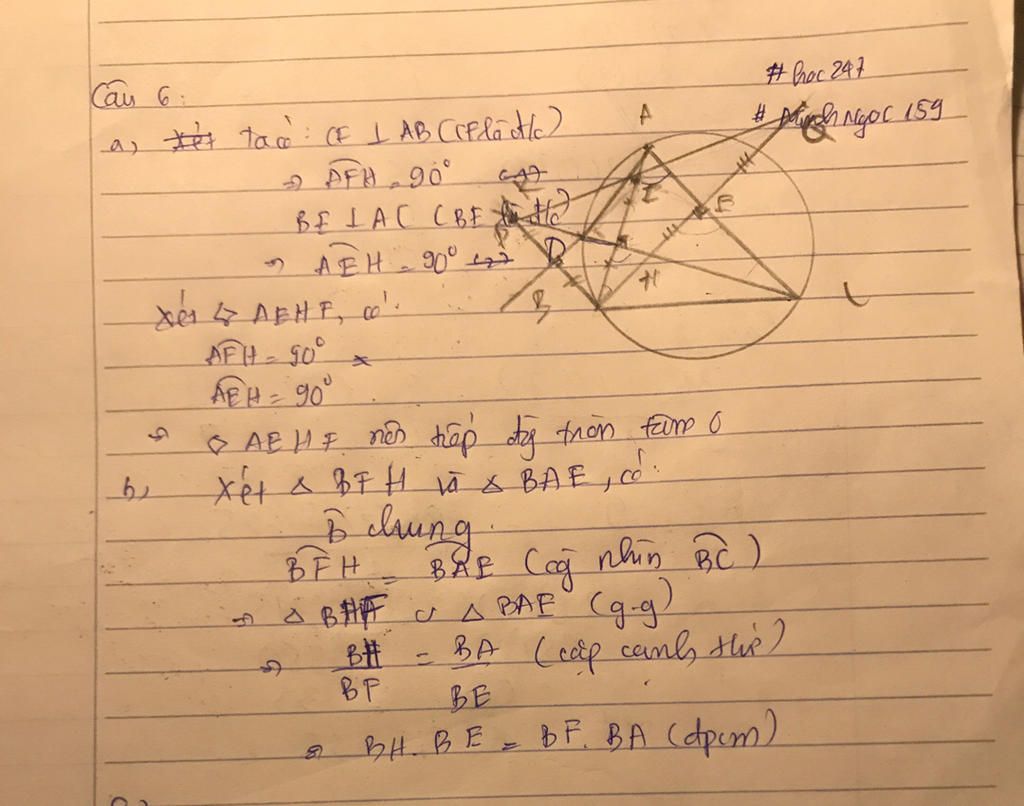 #hoc247
Câu 6:
# Minhngoc159
a, Xét ta có: CF ⊥ AB (CF là đ/c)
⇒ AFH = 90°
BE ⊥ AC (BE là đ/c)
⇒ AEH = 90°
Xét ◇ AEHF, có:
AFH = 90°
AEH = 90°
⇒ ◇ AEHF nội tiếp đg tròn tâm O
b, Xét △ BFH và △ BAE, có:
B chung.
BFH = BAE (cg nhìn BC)
⇒ △ BHF ∽ △ BAE (g-g)
⇒ BH/BF = BA/BE (cặp cạnh t/ứ)
⇒ BH. BE = BF. BA (đpcm)
A
I
E
K
D
B
H